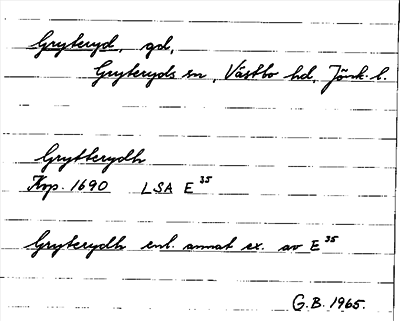 Gryteryd, gd,
Gryteryds sn, Västbo hd, Jönk. l.
Grytterydh
Kop. 1690 LSA E 35
Gryterydh enl. annat ex. av E 35
G.B. 1965.